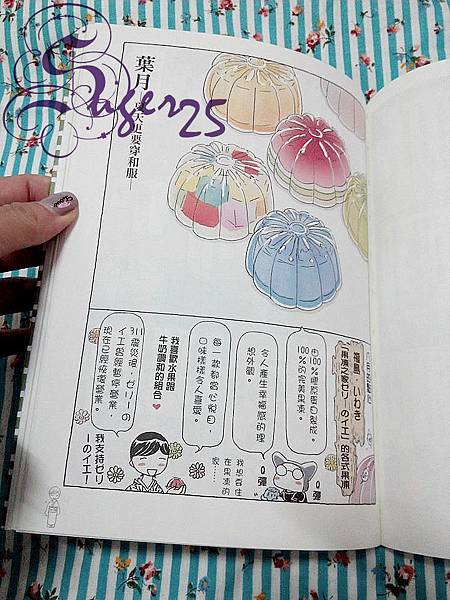 Suger25
葉月
天更要穿和服——
福島．いわき
「果凍之家ゼリーのイエ」的各式果凍
由100%膠原蛋白製成。
100%的完美果凍。
Q彈
Q彈
令人產生幸福感的理
想外觀。
我想吞住
在果凍的
家……
每一款都賞心悅目，
口味樣樣令人喜愛。
我喜歡水果跟
牛奶調和的組合♥
311震災後，ゼリーの
イエ曾經暫停營業，
現在已經恢復營業。
我支持ゼリ
ーのイエ！